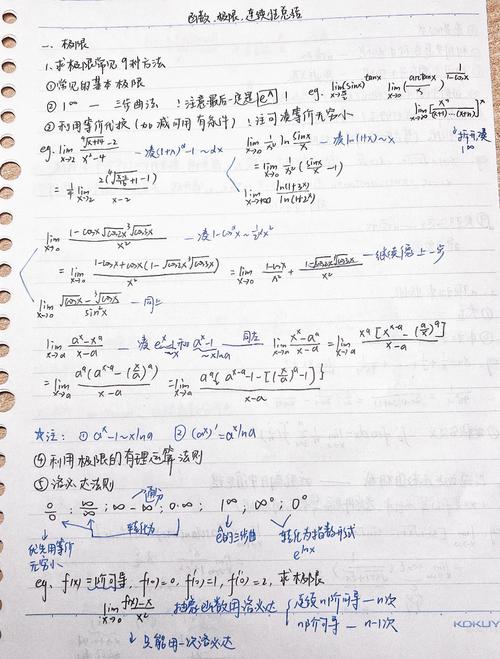 函数、极限、连续性总结
一、极限
1、求极限常见9种方法
①常见的基本极限
②1^∞ — 三步曲法 !注意最后一定是e^A! eg. lim(x→π/2)(sinx)^tanx lim(x→0)(arctanx/x)^(1/(1-cosx))
③利用等价代换(加减可用有条件) !注可凑等价无穷小! lim(x→∞)[x^n/((x+1)…(x+n))]^x
拆可凑1^∞
eg. — 凑(1+x)^α-1~αx lim(x→0) 1/x² ln sinx/x — 凑ln(1+x)~x
= lim(x→0) 1/x² (sinx/x -1)
lim(x→+∞) ln(1+3^x)/ln(1+2^x)
lim(x→0) (1-cosx√cos2x ³√cos3x)/x² — 凑1-cos^αx~½αx²
= lim(x→0) (1-cosx+cosx(1-√cos2x ³√cos3x))/x² = lim(x→0) (1-cosx)/x² + (1-√cos2x ³√cos3x)/x² — 继续像上一步
lim(x→0) (√cosx-³√cosx)/sin²x — 同上
lim(x→a) (a^x-x^a)/(x-a) — 凑e^x-1~x和a^x-1~xlna 同在 lim(x→a) (x^x-a^a)/(x-a) = lim(x→a) x^a[x^(x-a)-(a/x)^a]/(x-a)
= lim(x→a) a^a(a^(x-a)-(x/a)^a)/(x-a) = lim(x→a) a^a{a^(x-a)-1-[(x/a)^a-1]}/(x-a)
☆注: ①a^x-1~xlna ②(a^x)'=a^xlna
④利用极限的有理运算法则
⑤洛必达法则
通分
0/0 ; ∞/∞ ; ∞-∞ ; 0·∞ ; 1^∞ ; ∞^0 ; 0^0
转化为
优先用等价无穷小
e的三步曲 转化为指数形式
e^lnx
eg. f(x)二阶可导, f(0)=0, f'(0)=1, f''(0)=2, 求极限
lim(x→0) (f(x)-x)/x² 抽象函数用洛必达 连续n阶可导—n次
n阶可导—n-1次
↓只能用一次洛必达
KOKUY